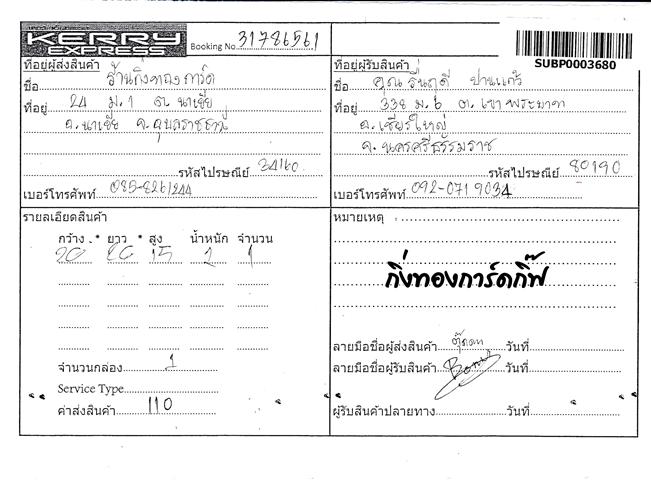 KERRY
EXPRESS
Booking No. 31786561
SUBP0003680
ที่อยู่ผู้ส่งสินค้า
ชื่อ ร้านกิ่งทองการ์ด
ที่อยู่ 24 ม.1 ต. นาเยีย
อ.นาเยีย จ.อุบลราชธานี
รหัสไปรษณีย์ 34160
เบอร์โทรศัพท์ 085-8261244
ที่อยู่ผู้รับสินค้า
ชื่อ คุณ รื่นฤดี ปานแก้ว
ที่อยู่ 338 ม.6 ต. เขาพระบาท
อ.เชียรใหญ่
จ. นครศรีธรรมราช
รหัสไปรษณีย์ 80190
เบอร์โทรศัพท์ 092-071 9034
รายละเอียดสินค้า
กว้าง * ยาว * สูง น้ำหนัก จำนวน
20 15 2 1
จำนวนกล่อง 1
Service Type
ค่าส่งสินค้า 110
หมายเหตุ :
กิ่งทองการ์ดกิ๊ฟ
ลายมือชื่อผู้ส่งสินค้า วันที่
ลายมือชื่อผู้รับสินค้า วันที่
ผู้รับสินค้าปลายทาง วันที่